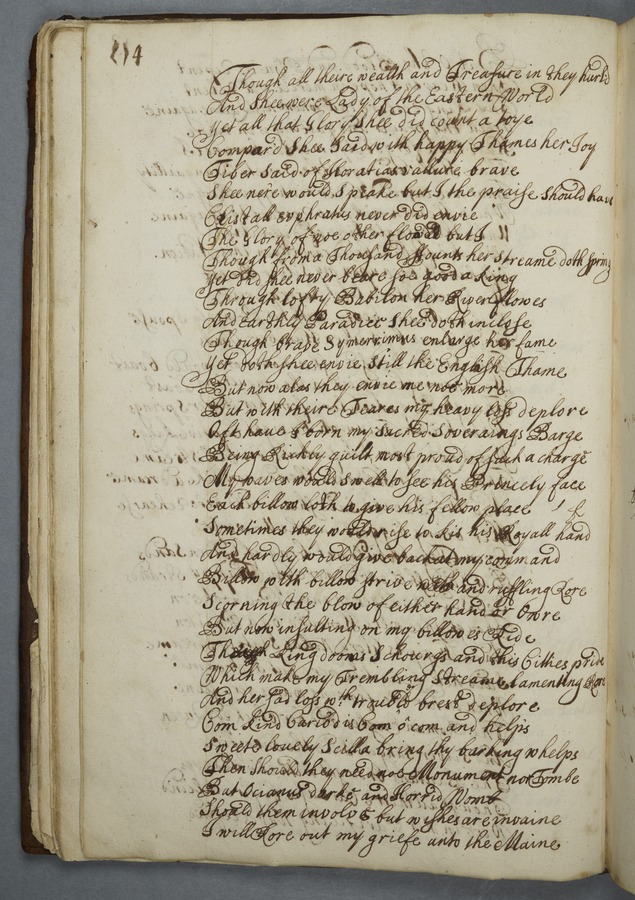 214
Though all theire wealth and Treasure in they hurld
And Shee were Lady of the Eastern World
Yet all that Glory Shee did count a toye
Compard Shee Said with happy Thames her Joy
Tiber Said of Horatias vallure brave
Shee nere would Speake but I the praise Should have
Cristall Euphratus never did envie
The Glory of noe other flowd but I
Though from a Thousand Mounts her streame doth Spring
Yet did shee never beare soe good a King
Through lofty Babilon her River flowes
And Earthly Paradice Shee doth inclose
Though brave Symerrimus enlarge her fame
Yet doth shee envie still the English Thame
But now alas they envie me not more
But with theire Teares my heavy loss deplore
Oft have I born my Sacred Soveraings Barge
Being Richly guilt most proud of such a charge
My waves would Swell to See his Princely face
Each billow loth to give his fellow place
Sometimes they would rise to kis his Royall hand
And hardly would give back at my command
Billow with billow strive and ruffling Rore
Scorning the blow of either hand or Owre
But now insulting on my billowes Ride
The King dooms Schourgs and this Citties pride
Which make my Trembling Streame lamenting Rore
And her Sad loss wth troubld brest deplore
Com Kind Caribdis Com ô com and helps
Sweete lovely Scilla bring thy barking whelps
Then Should they need noe Monument nor Tombe
But Ocianus darke and Horrid Womb
Should them involve but wishes are in vaine
I will Rore out my griefe unto the Maine